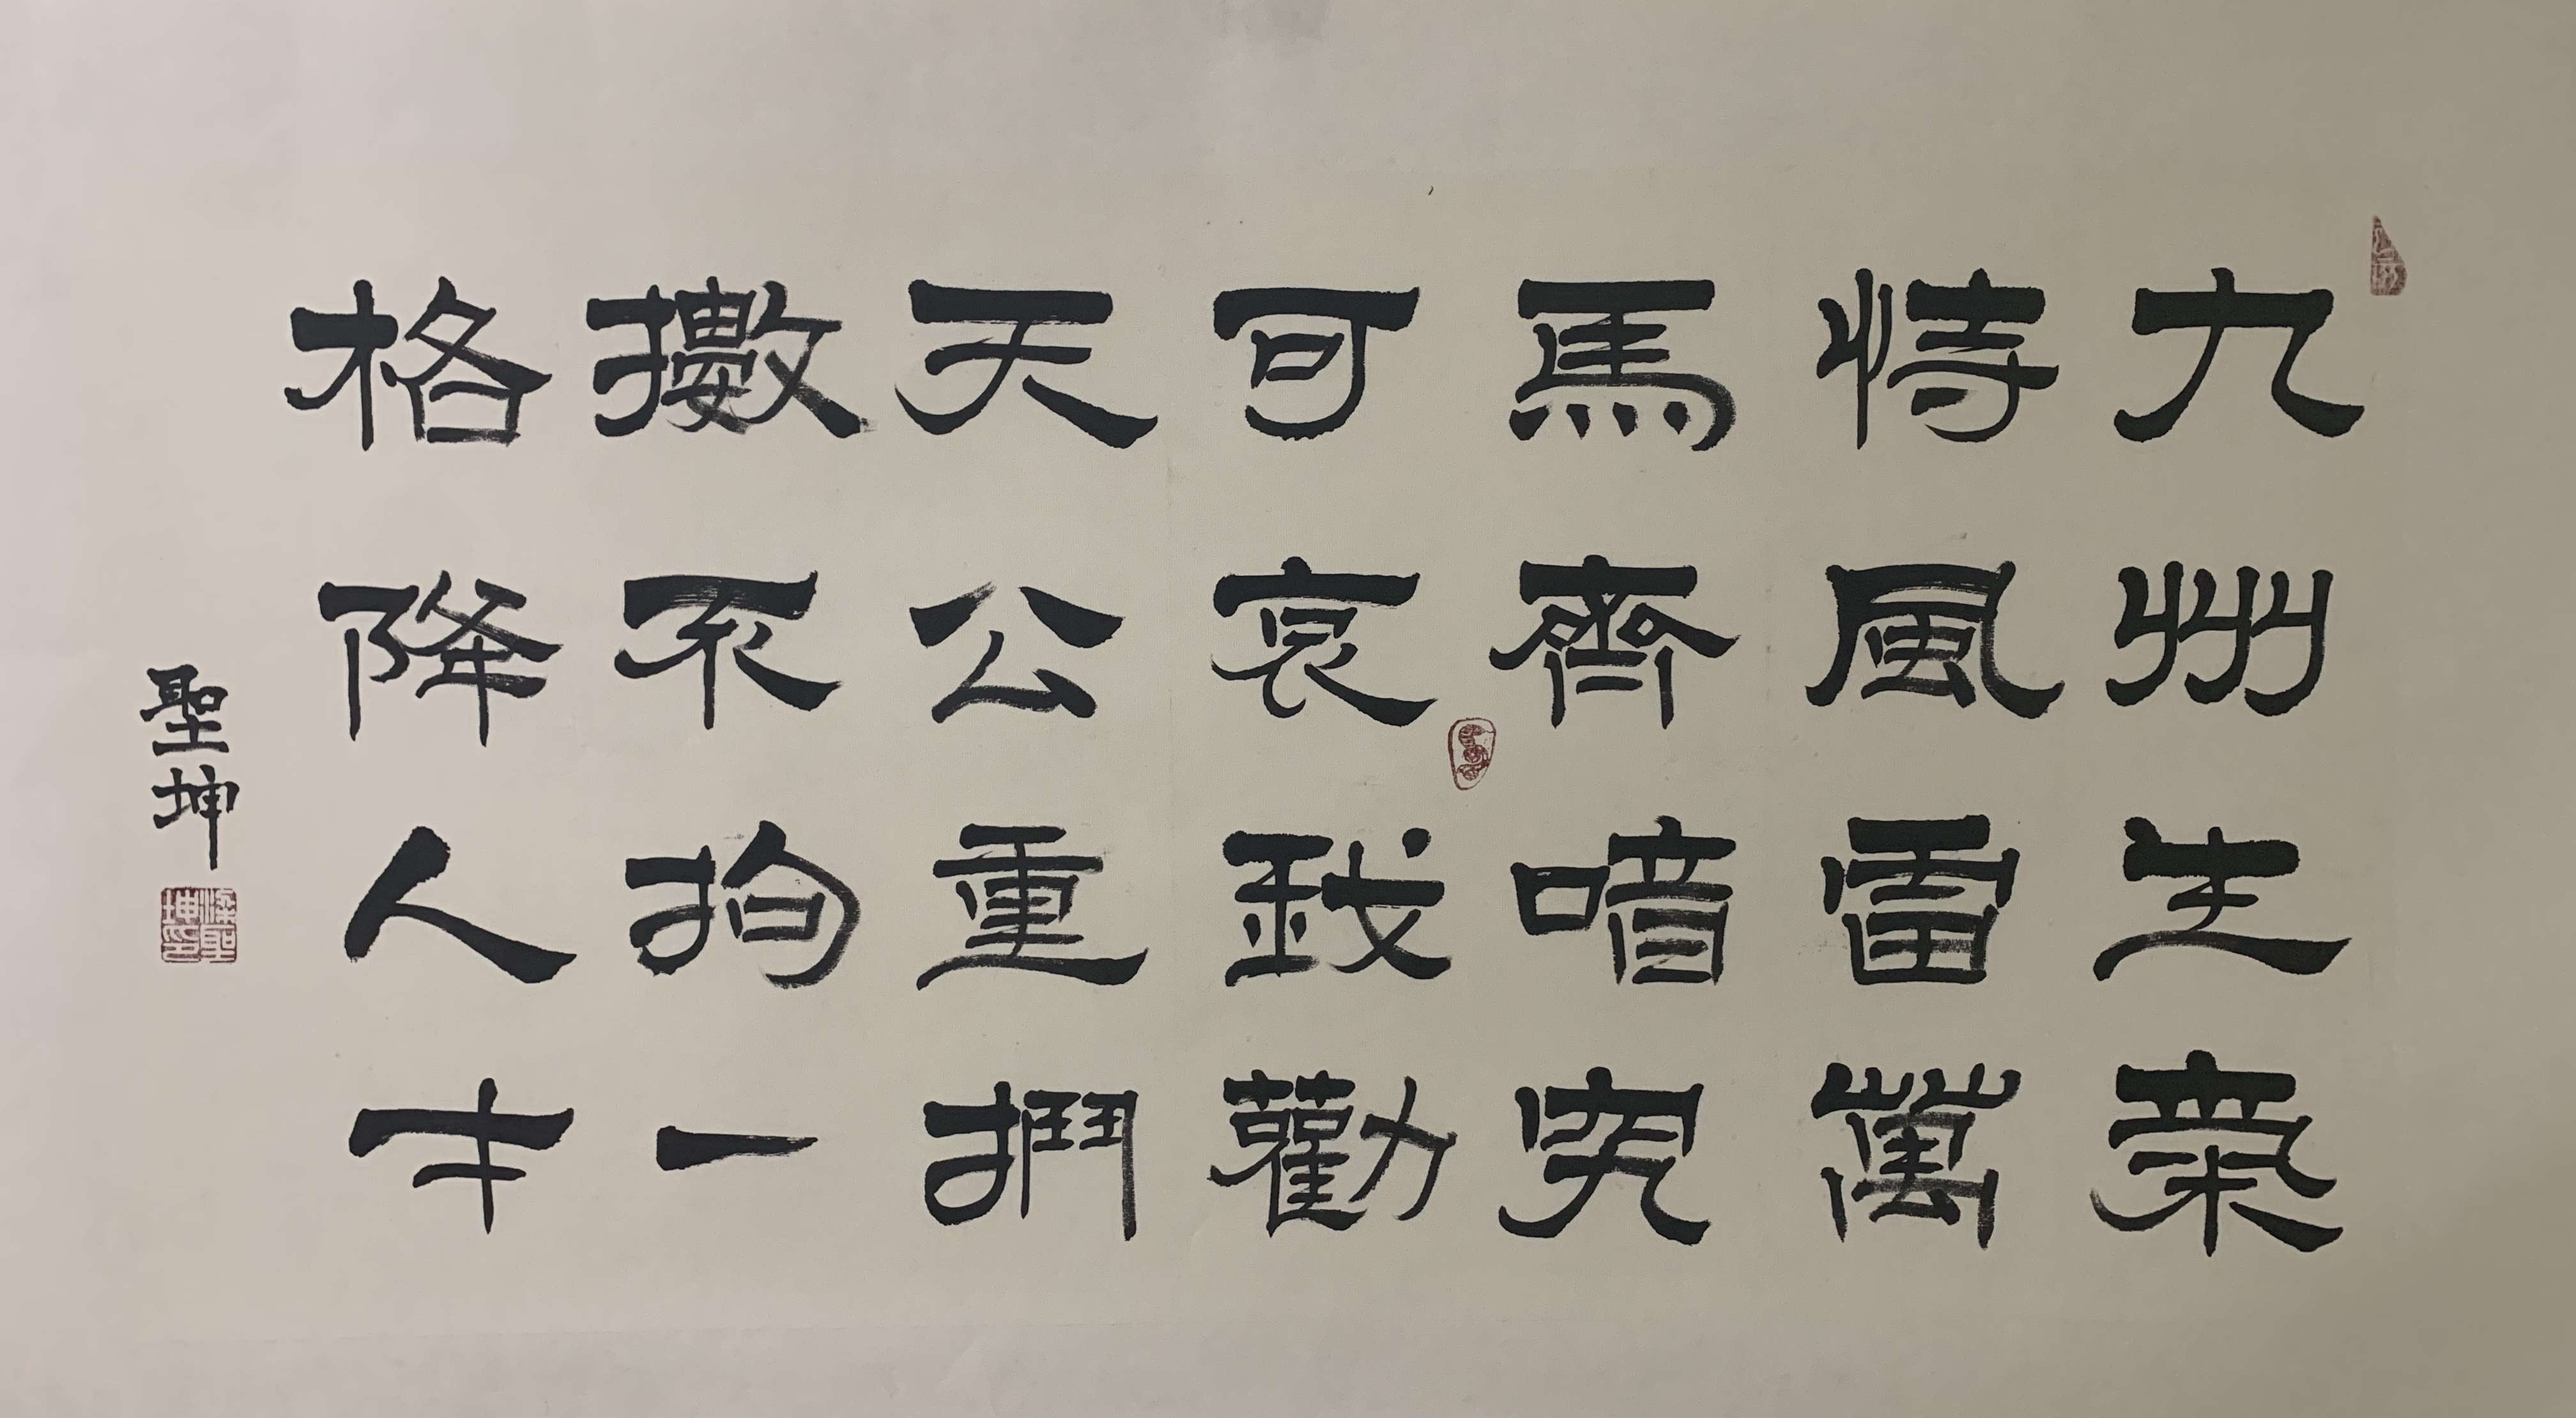 九州生氣
恃風雷萬
馬齊喑究
可哀我勸
天公重抖
擻不拘一
格降人才
聖坤
梁聖坤印